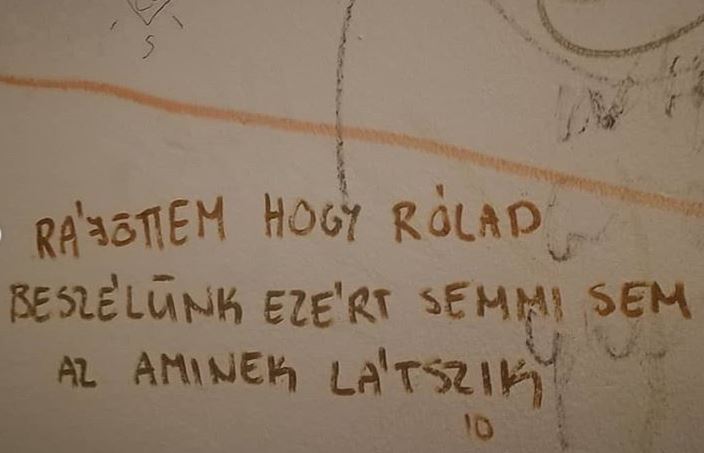 S
RÁJÖTTEM HOGY RÓLAD
BESZÉLÜNK EZÉRT SEMMI SEM
AZ AMINEK LÁTSZIK
10